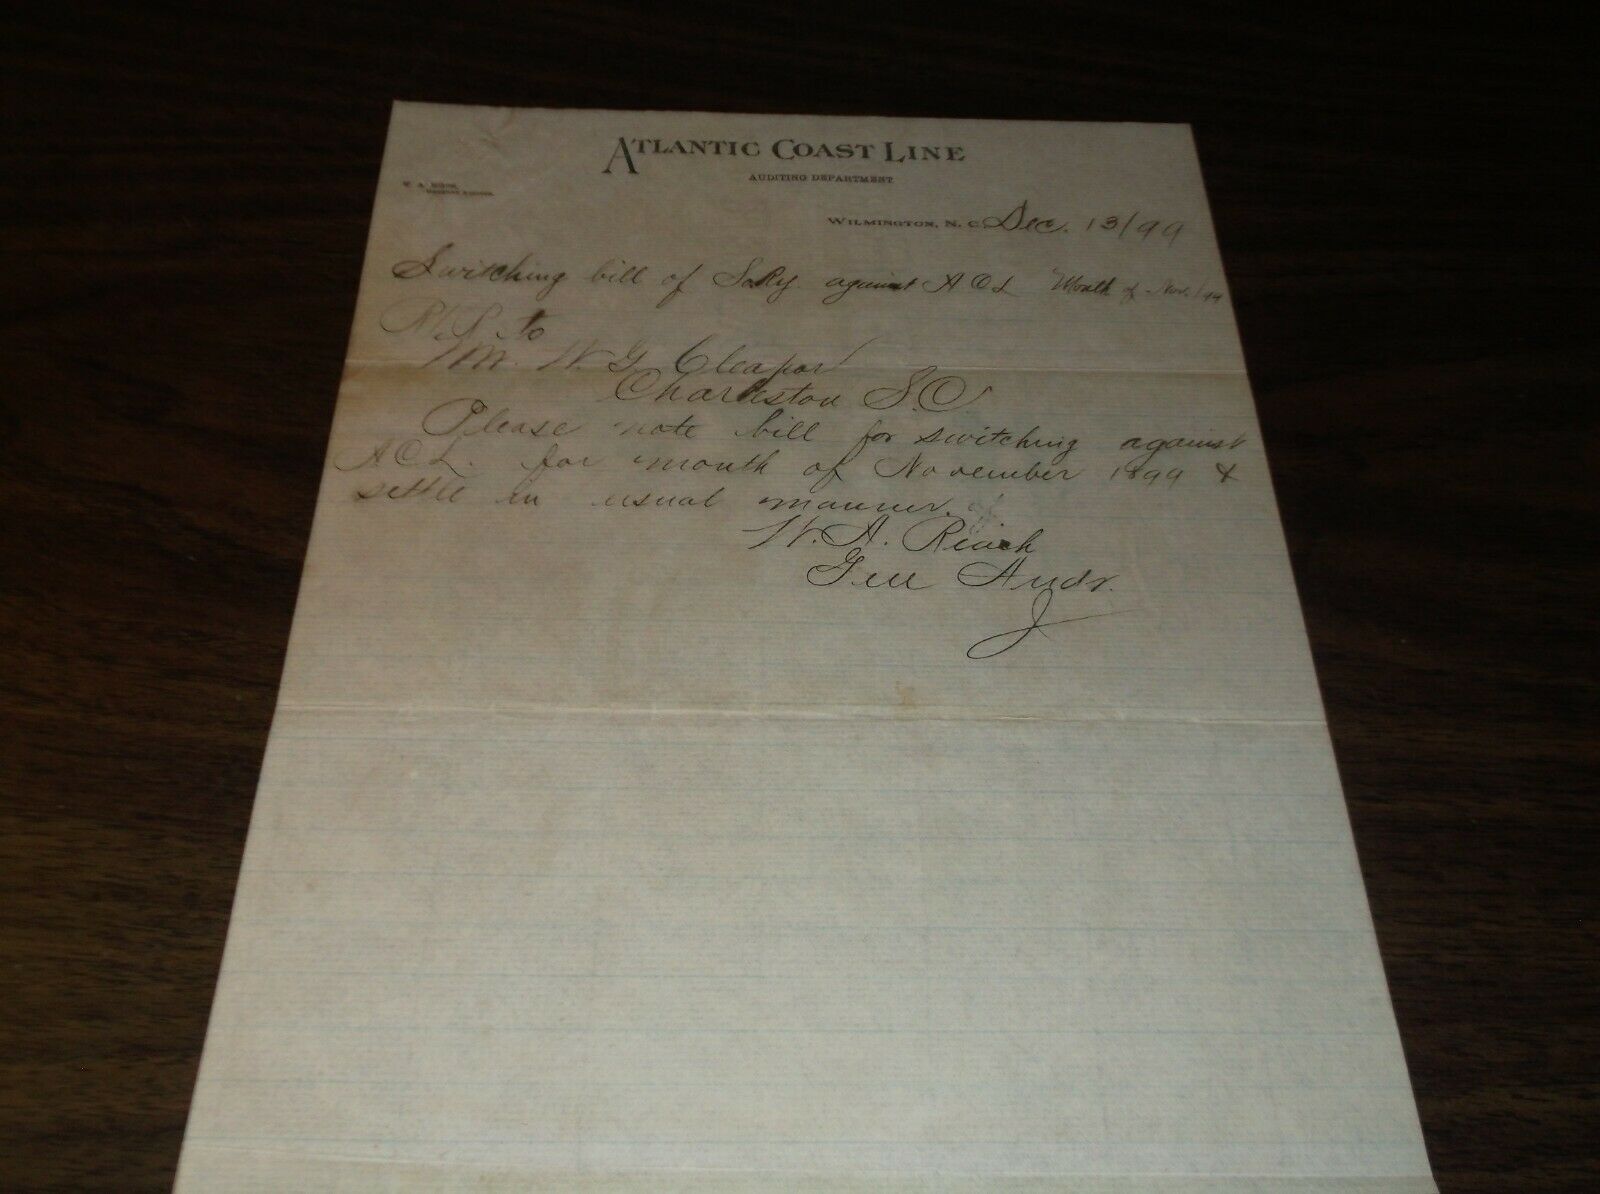 ATLANTIC COAST LINE
AUDITING DEPARTMENT
WILMINGTON, N. C. Dec. 13/99
Switching bill of SoRy. against A C L Month of Nov./99
to
Mr. W. G. Cleapor
Charleston S.C
Please note bill for switching against
A C L. for month of November 1899 &
settle in usual manner.
W. A. Riach
Genl Audr.
J